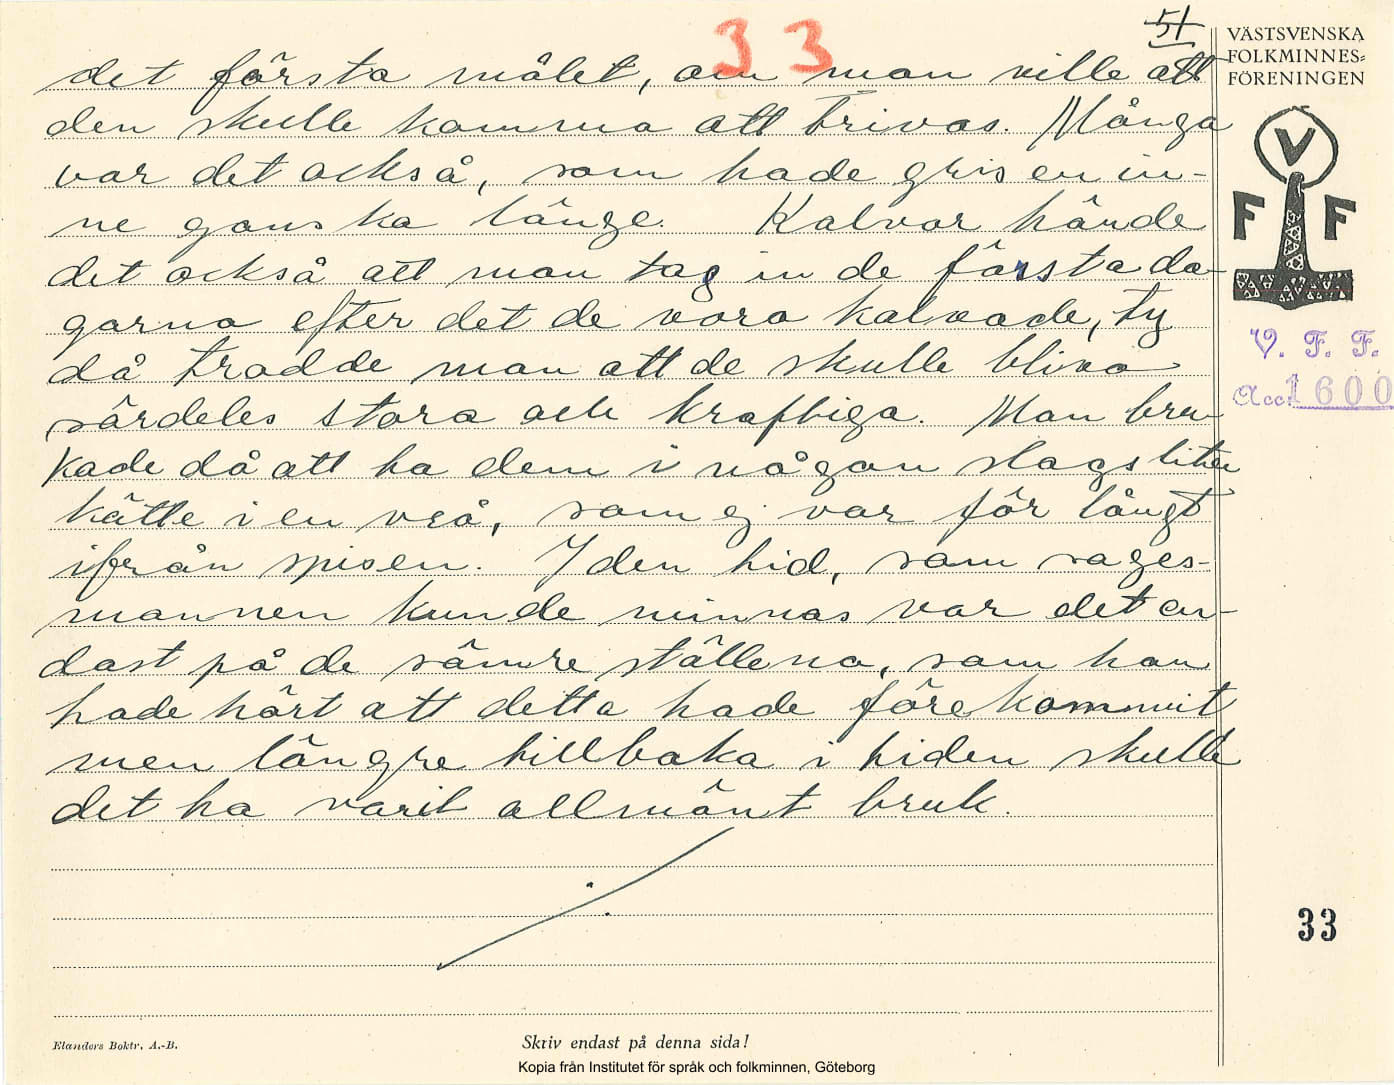 33
51
det första målet, om man ville att
den skulle komma att trivas. Många
var det också, som hade grisen in-
ne ganska länge. Kalvar hände
det också att man tog in de första da-
garna efter det de voro kalvade, ty
då trodde man att de skulle bliva
särdeles stora och kraftiga. Man bru-
kade då att ha dem i någon slags liten
kätte i en vrå, som ej var för långt
ifrån spisen. I den tid, som sages-
mannen kunde minnas var det en-
dast på de sämre ställena, som han
hade hört att detta hade förekommit
men längre tillbaka i tiden skulle
det ha varit allmänt bruk.
VÄSTSVENSKA
FOLKMINNES=
FÖRENINGEN
V
F F
V. F. F.
Acc. 1600
33
Elanders Boktr. A.-B.
Skriv endast på denna sida!
Kopia från Institutet för språk och folkminnen, Göteborg